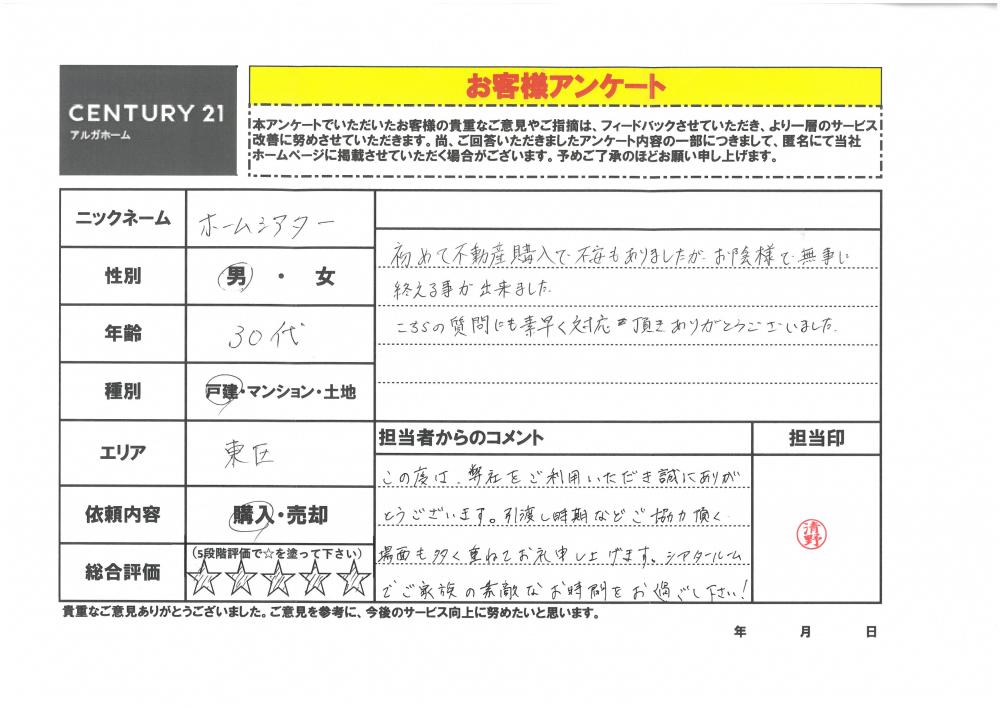 CENTURY 21
アルガホーム
お客様アンケート
本アンケートでいただいたお客様の貴重なご意見やご指摘は、フィードバックさせていただき、より一層のサービス
改善に努めさせていただきます。尚、ご回答いただきましたアンケート内容の一部につきまして、匿名にて当社
ホームページに掲載させていただく場合がございます。予めご了承のほどお願い申し上げます。
ニックネーム
ホームシアター
性別
男・女
年齢
30代
種別
戸建・マンション・土地
エリア
東区
依頼内容
購入・売却
総合評価
(5段階評価で☆を塗って下さい)
初めて不動産購入で不安もありましたが、お陰様で無事に
終える事が出来ました。
こちらの質問にも素早く対応頂きありがとうございました。
担当者からのコメント
この度は、弊社をご利用いただき誠にありが
とうございます。引渡し時期などご協力頂く
場面も多く重ねてお礼申し上げます。シアタールーム
でご家族の素敵なお時間をお過ごし下さい!
担当印
清野
貴重なご意見ありがとうございました。ご意見を参考に、今後のサービス向上に努めたいと思います。
年 月 日